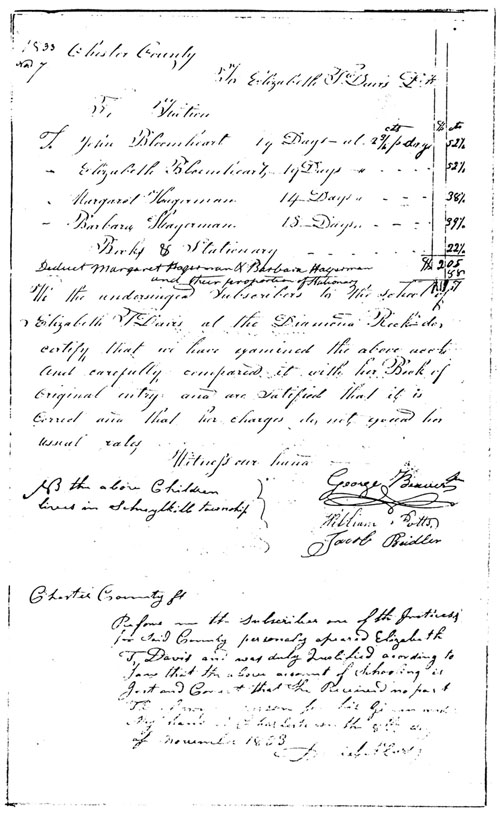 1833 Chester County
Nov 7
To Elizabeth T Davis Dr
To Tuition
cts $ cts
To John Bloomheart 19 Days at 2 3/4 p day 52 1/4
" Elizabeth Bloomheart 19 Days " - - - 52 1/4
" Margaret Hagerman 14 Days " - - - 38 1/2
" Barbara Hagerman Days - - - 39 1/2
Books & Stationary 22 1/2
$ 2 05
Deduct Margaret Hagerman & Barbara Hagerman
and their proportion of Stationary
We the undersigned Subscribers to the school of
Elizabeth T Davis at the Diamond Rock do
certify that we have examined the above acct
and carefully compared it with her Book of
Original entry and are satified that it is
Correct and that her charges do not exceed her
usual rates
Witness our hand
NB the above Children
lives in Schuylkill township
George Beaver
William Potts
Jacob Ridler
Chester County ss
Before me the Subscriber one of the Justices
for Said County personaly apeared Elizabeth
T, Davis and was duly Qualified acording to
Law that the above account of Schooling is
Just and Correct that She Received no part
my hand the day
of November 1833